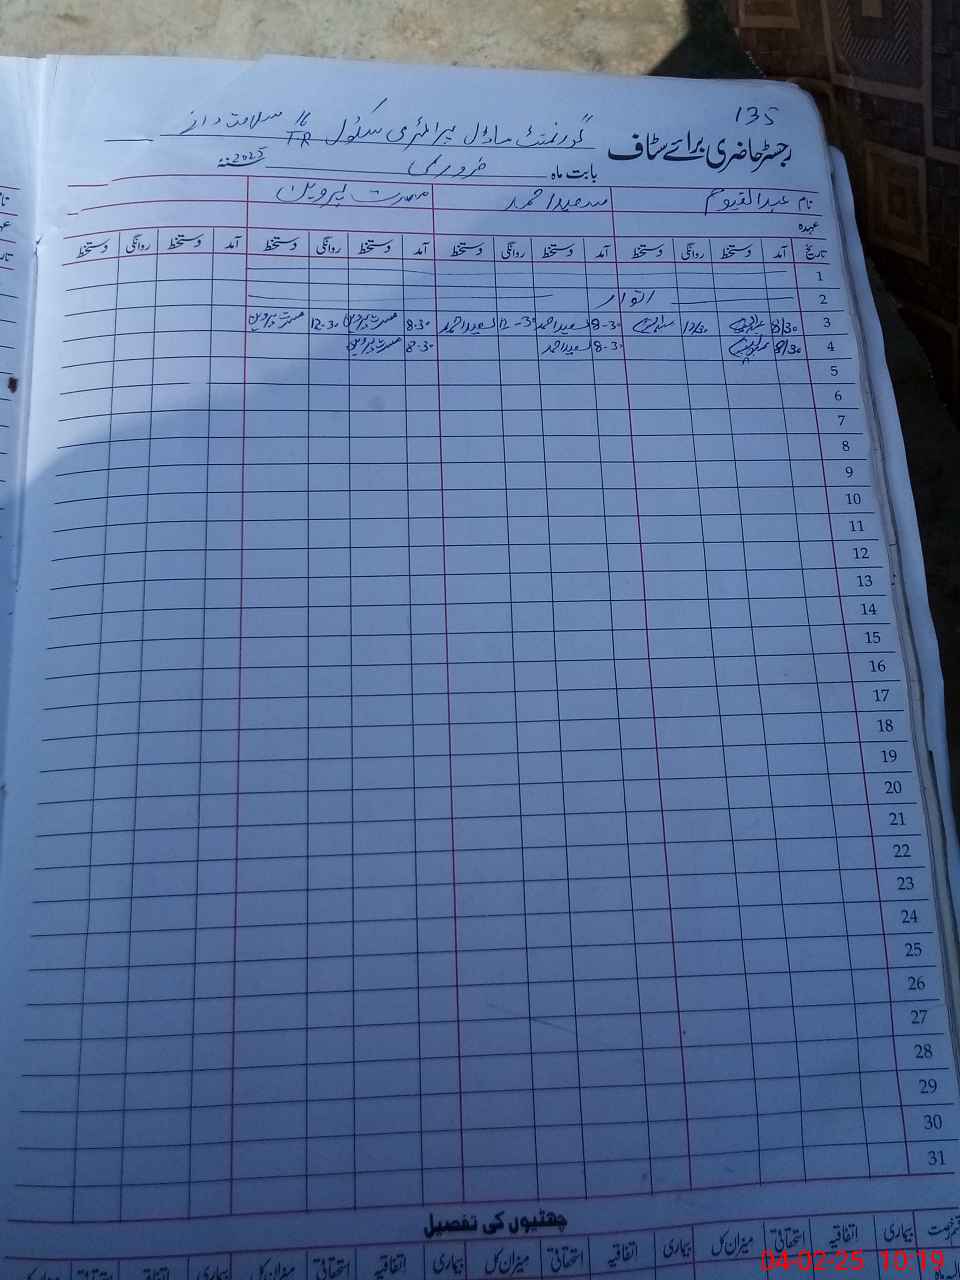 135
رجسٹر حاضری برائے سٹاف گورنمنٹ ماڈل پرائمری سکول TR
بابت ماہ فروری 2025
نام عبدالقیوم سعید احمد مسرت پروین
عہدہ
تاریخ آمد دستخط روانگی دستخط آمد دستخط روانگی دستخط آمد دستخط روانگی دستخط آمد دستخط روانگی دستخط
1
2 اتوار
3 8/30 12/30 8-30 سعید احمد 12-30 سعید احمد 8-30 مسرت پروین 12-30 مسرت پروین
4 8/30 8-30 سعید احمد 8-30 مسرت پروین
5
6
7
8
9
10
11
12
13
14
15
16
17
18
19
20
21
22
23
24
25
26
27
28
29
30
31
چھٹیوں کی تفصیل
قسم رخصت بیماری اتفاقیہ استحقاقی میزان کل بیماری اتفاقیہ استحقاقی میزان کل بیماری اتفاقیہ استحقاقی میزان کل بیماری اتفاقیہ استحقاقی میزان کل
04-02-25 10:19